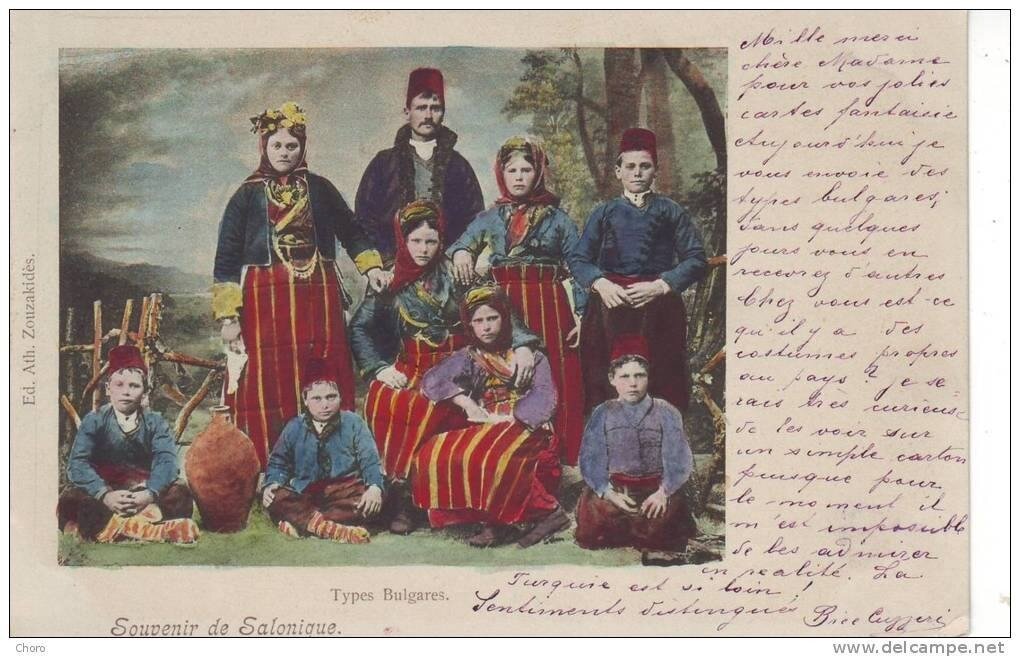 Mille merci
chère Madame
pour vos jolies
cartes fantaisie
Aujourd'hui je
vous envoie des
types bulgares;
dans quelques
jours vous en
recevrez d'autres
Chez vous est-ce
qu'il y a des
costumes propres
au pays? je se-
rais très curieuse
de les voir sur
un simple carton
puisque pour
le moment il
m'est impossible
de les admirer
en realité. La
Turquie est si loin!
Sentiments distengués
Ed. Ath. Zouzakidès.
Types Bulgares.
Souvenir de Salonique.
Choro
www.delcampe.net